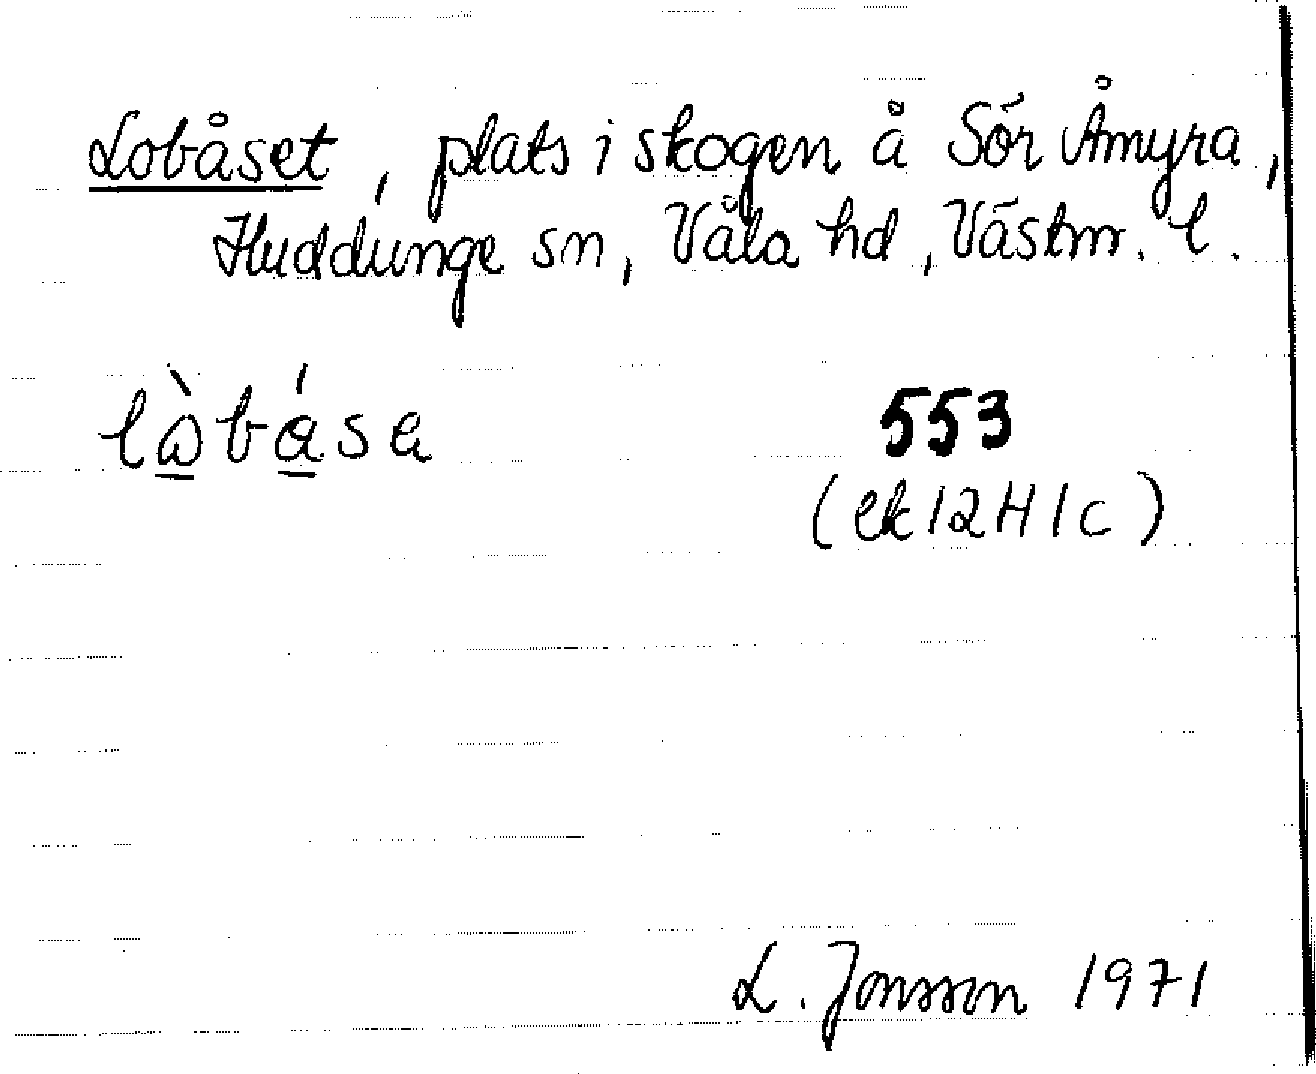 Lobåset, plats i skogen å Sör Åmyra,
Huddunge sn, Våla hd, Västm. l.
lò̲bá̲sa
553
(ek 12H1c)
L. Jonsson 1971